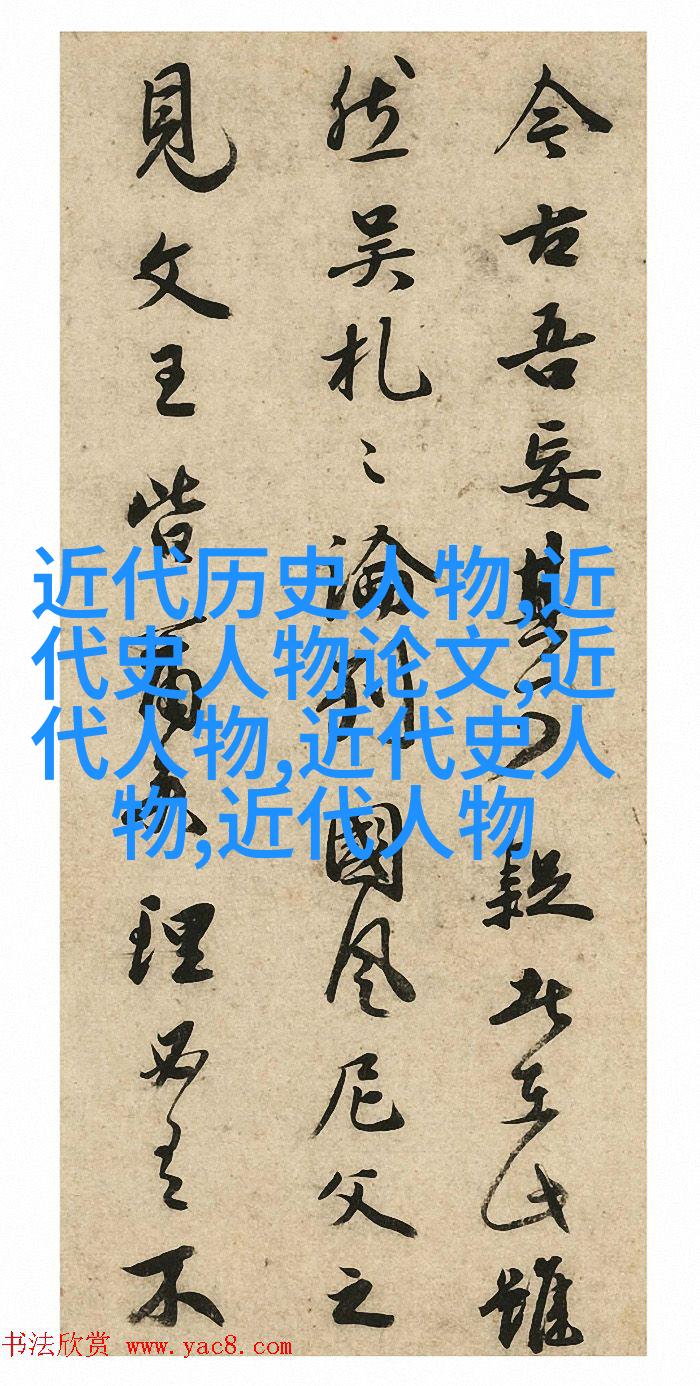 今古吾妄其在此雖
然吴札〻論列國風尼父之
見文王皆理必有不
近代历史人物,近
代史人物论文,近
代人物,近代史人
物,近代人物
书法欣赏 www.yac8.com